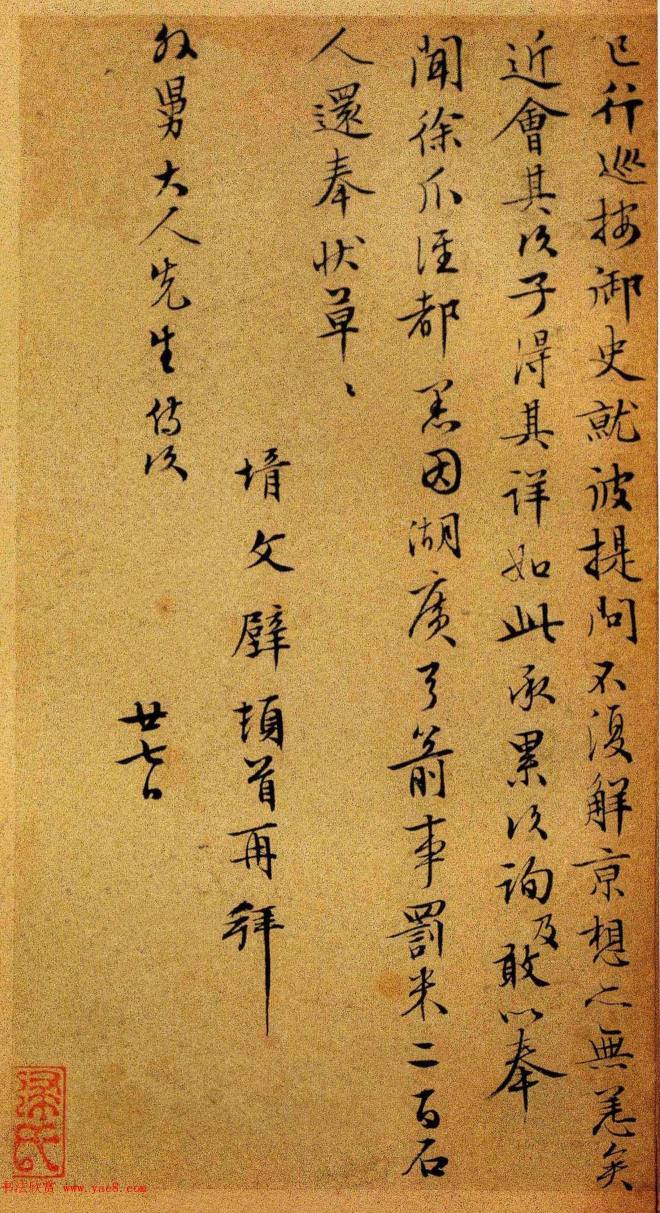 已行巡按御史就彼提问不復解京想亦無恙矣
近會其次子得其详如此承累次询及敢以奉
聞徐爪涯都 因湖廣弓箭事罰米二百石
人還奉状草〻
壻文壁頓首再拜
外舅大人先生侍次
廿七日
梁氏
书法欣赏 www.yac8.com